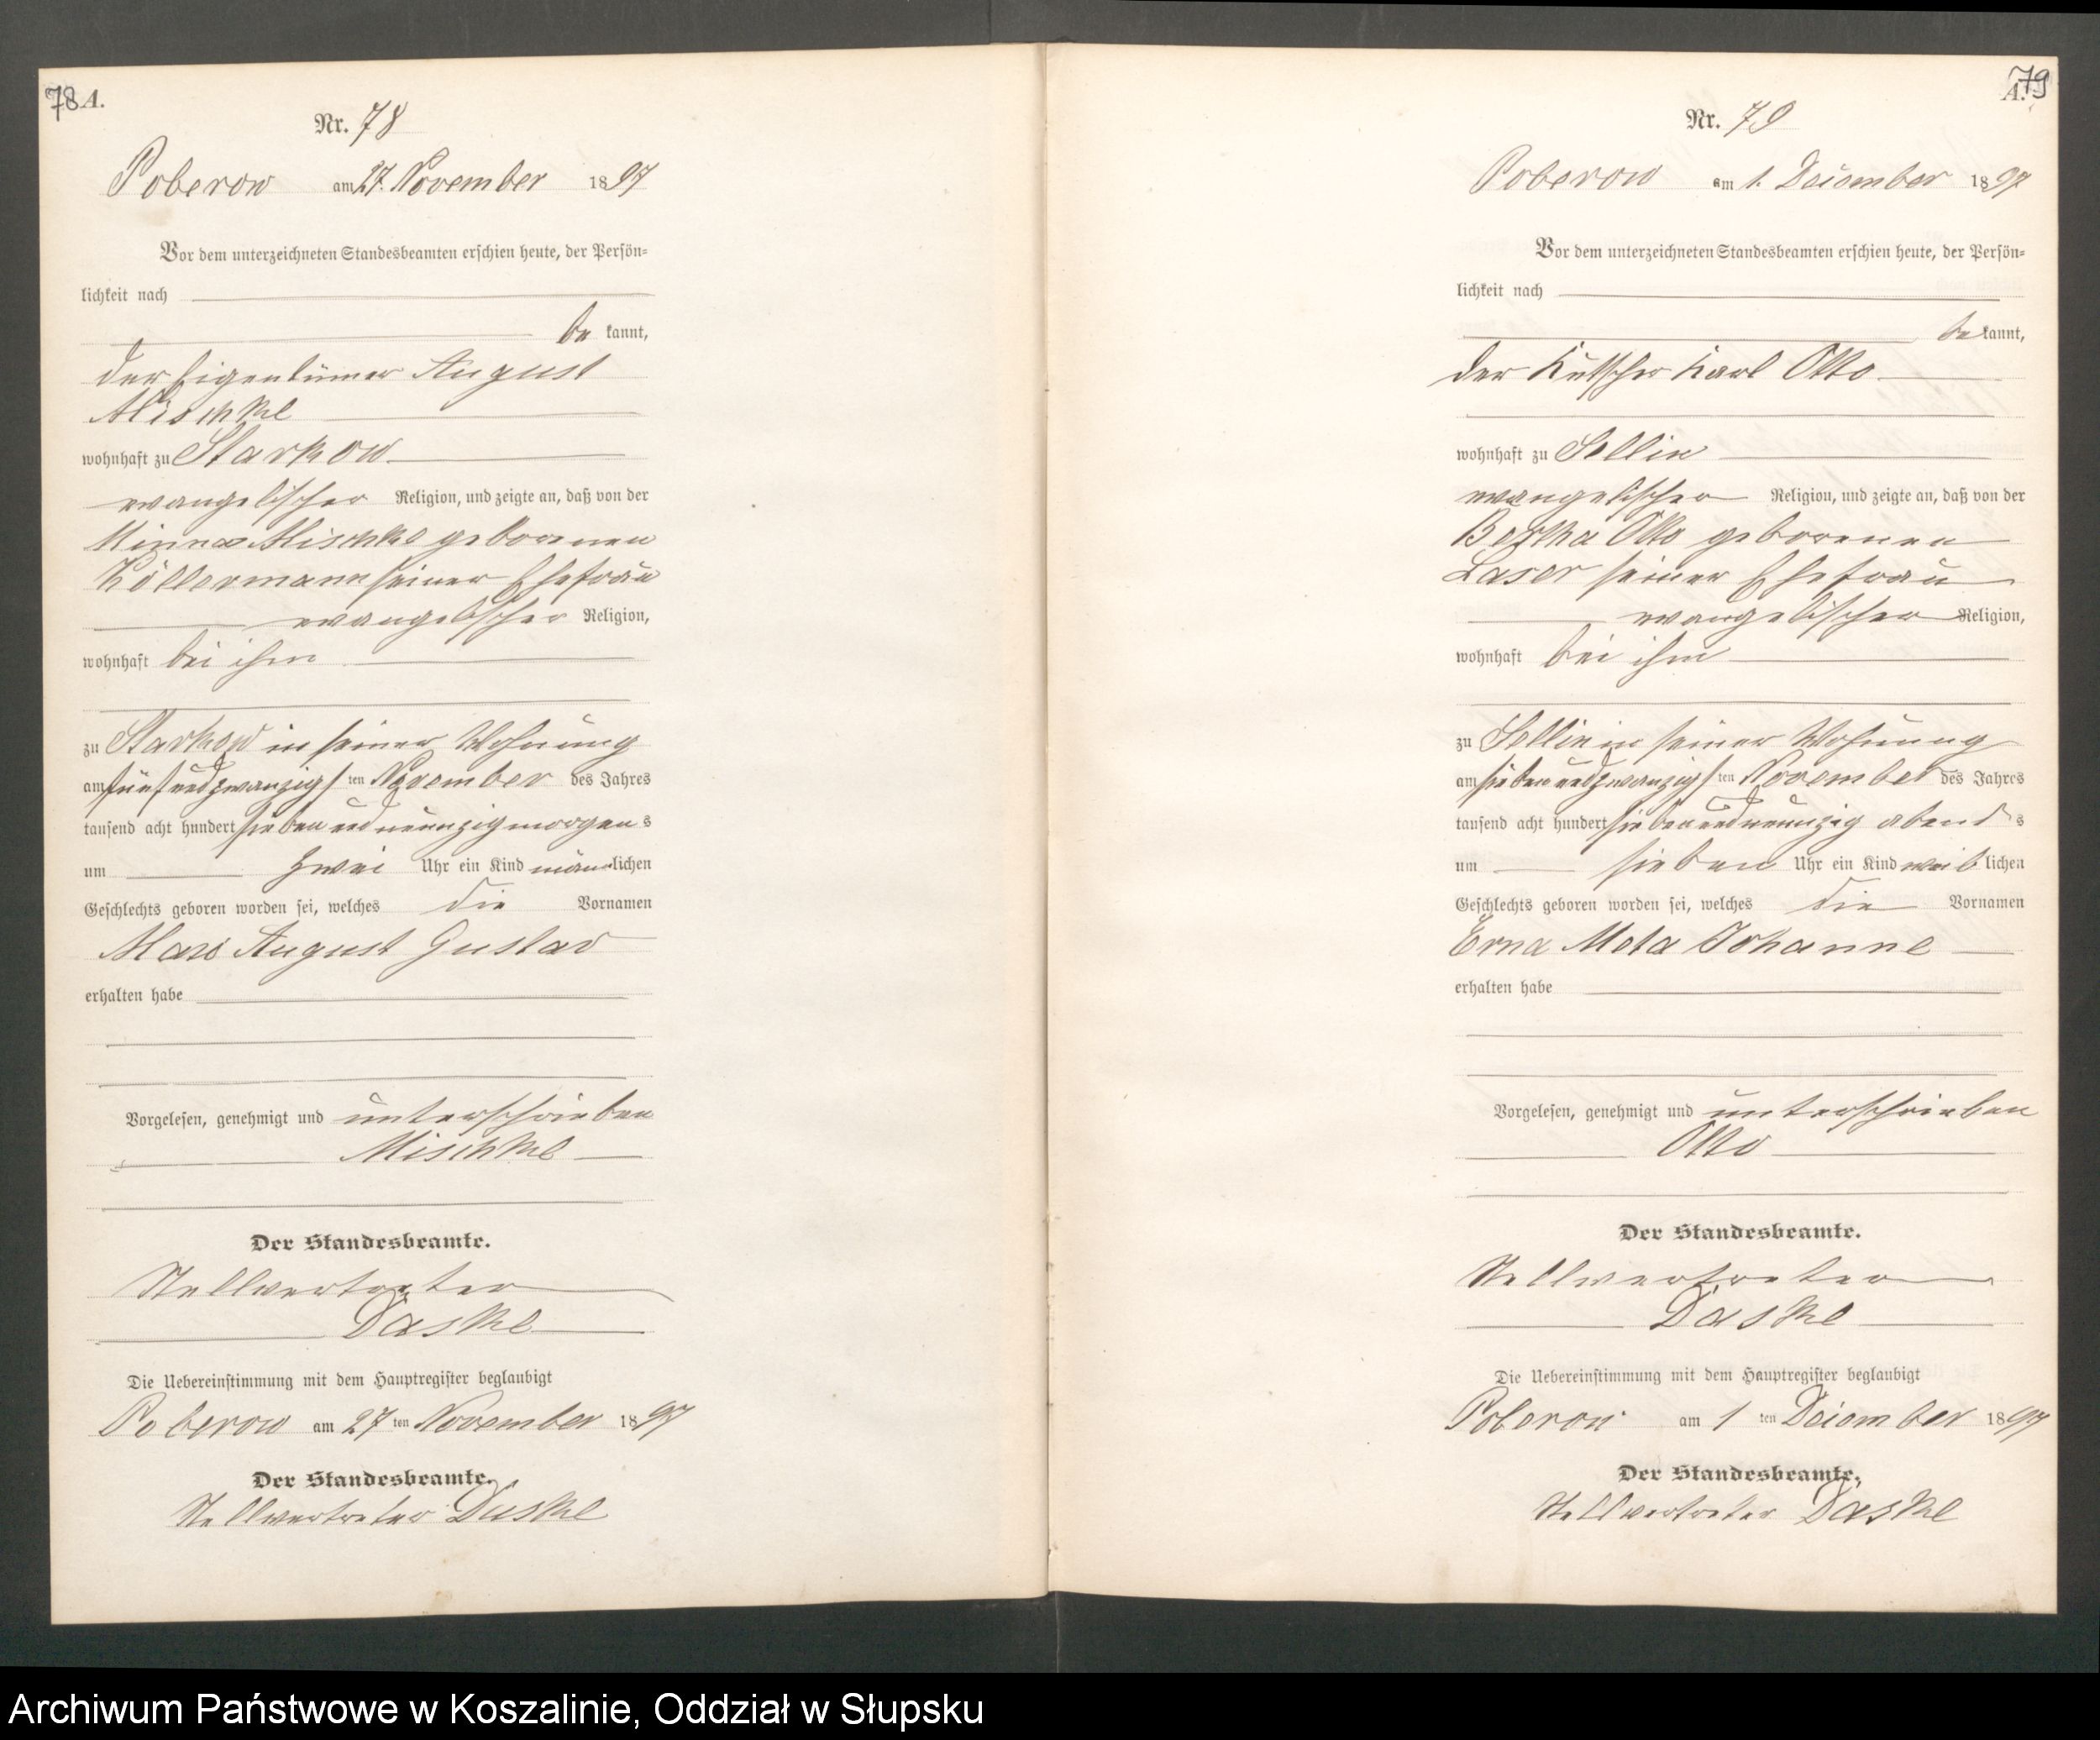 78 A.
Nr. 78
Poberow am 27. November 1897
Vor dem unterzeichneten Standesbeamten erschien heute, der Persön-
lichkeit nach
be kannt,
der Eigentümer August
Mischke
wohnhaft zu Starkow
evangelischer Religion, und zeigte an, daß von der
Minna Mischke geborenen
Köllermann seiner Ehefrau
evangelischer Religion,
wohnhaft bei ihm
zu Starkow in seiner Wohnung
am fünfundzwanzigsten November des Jahres
tausend acht hundert siebenundneunzig morgens
um zwei Uhr ein Kind männlichen
Geschlechts geboren worden sei, welches die Vornamen
Max August Gustav
erhalten habe
Vorgelesen, genehmigt und unterschrieben
Mischke
Der Standesbeamte.
Stellvertreter
Daske
Die Uebereinstimmung mit dem Hauptregister beglaubigt
Poberow am 27ten November 1897
Der Standesbeamte.
Stellvertreter Daske
A. 79
Nr. 79
Poberow am 1. Dezember 1897
Vor dem unterzeichneten Standesbeamten erschien heute, der Persön-
lichkeit nach
be kannt,
der Kutscher Karl Otto
wohnhaft zu Sellin
evangelischer Religion, und zeigte an, daß von der
Bertha Otto geborenen
Laser seiner Ehefrau
evangelischer Religion,
wohnhaft bei ihm
zu Sellin in seiner Wohnung
am siebenundzwanzigsten November des Jahres
tausend acht hundert siebenundneunzig abends
um sieben Uhr ein Kind weiblichen
Geschlechts geboren worden sei, welches die Vornamen
Erna Meta Johanne
erhalten habe
Vorgelesen, genehmigt und unterschrieben
Otto
Der Standesbeamte.
Stellvertreter
Daske
Die Uebereinstimmung mit dem Hauptregister beglaubigt
Poberow am 1ten Dezember 1897
Der Standesbeamte.
Stellvertreter Daske
Archiwum Państwowe w Koszalinie, Oddział w Słupsku